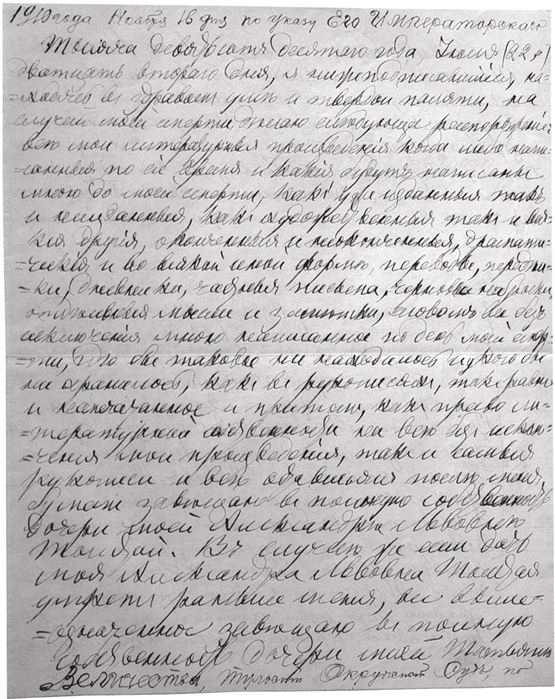 1910 года Ноября 16 дня по указу Его Императорскаго
Тысяча девятьсотъ десятаго года, Іюля (22 д)
двадцать второго дня, я нижеподписавшійся, на-
=ходясь въ здравомъ умѣ и твердой памяти, на
случай моей смерти дѣлаю слѣдующее распоряженіе:
всѣ мои литературныя произведенія когда либо напи-
санныя по сіе время и какія будутъ написаны
мною до моей смерти, какъ уже изданныя такъ
и неизданныя, какъ художественныя такъ и вся-
кія другія, оконченныя и неоконченныя, драмати-
=ческія и во всякой иной формѣ, переводы, передѣл-
ки, дневники, частныя письма, черновые наброски
отдѣльныя мысли и замѣтки, словомъ все безъ
исключенія мною написанное по день моей смер-
=ти, гдѣ бы таковое ни находилось и у кого бы
ни хранилось, какъ въ рукописяхъ, такъ равно
и напечатанное и притомъ какъ право ли-
=тературной собственности на всѣ безъ исклю-
=ченія мои произведенія, такъ и самыя
рукописи и все оставшіяся послѣ меня
бумаги завѣщаю въ полную собственность
дочери моей Александрѣ Львовнѣ
Толстой. Въ случаѣ же если дочь
моя Александра Львовна Толстая
умретъ раньше меня, все выше-
=означенное завѣщаю въ полную
собственность дочери моей Татьянѣ
Величества, Тульскій Окружный Судъ, по